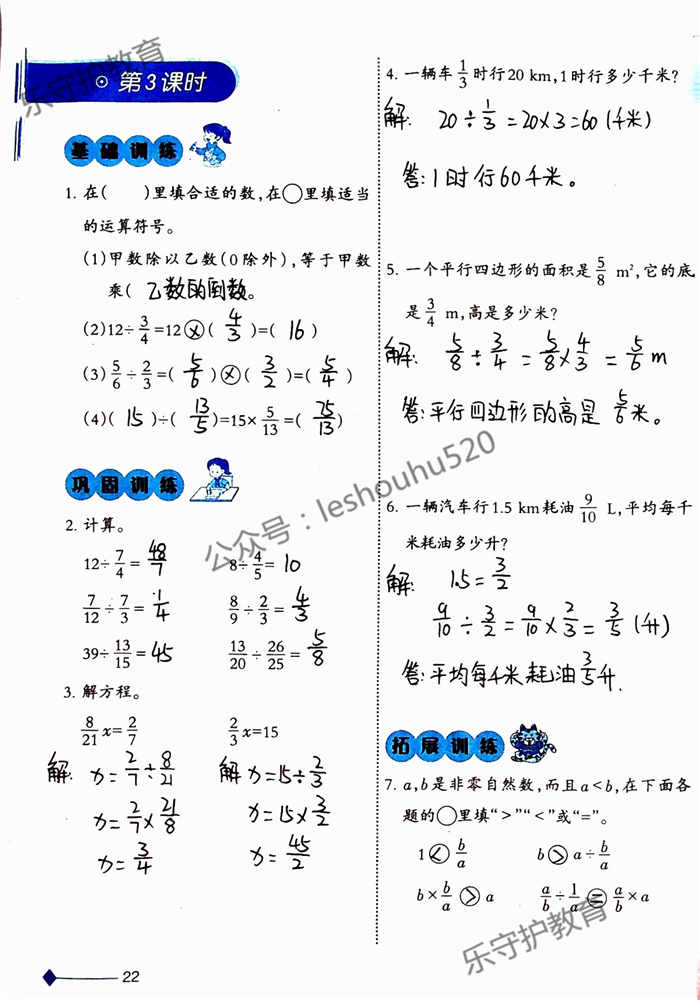 乐守护教育
第3课时
基础训练
1. 在(　　)里填合适的数,在○里填适当
的运算符号。
(1)甲数除以乙数(0除外),等于甲数
乘(乙数的倒数。
(2)12÷3/4=12⊗(4/3)=(16)
(3)5/6÷2/3=(5/6)⊗(3/2)=(5/4)
(4)(15)÷(13/5)=15×5/13=(75/13)
巩固训练
2. 计算。
12÷7/4=48/7　8÷4/5=10
7/12÷7/3=1/4　8/9÷2/3=4/3
39÷13/15=45　13/20÷26/25=5/8
3. 解方程。
8/21x=2/7　2/3x=15
解: x=2/7÷8/21　解: x=15÷2/3
x=2/7×21/8　x=15×3/2
x=3/4　x=45/2
22
4. 一辆车1/3时行20 km,1时行多少千米?
解: 20÷1/3=20×3=60(千米)
答:1时行60千米。
5. 一个平行四边形的面积是5/8 m²,它的底
是3/4 m,高是多少米?
解: 5/8÷3/4=5/8×4/3=5/6m
答:平行四边形的高是5/6米。
公众号:leshouhu520
6. 一辆汽车行1.5 km耗油9/10 L,平均每千
米耗油多少升?
解: 1.5=3/2
9/10÷3/2=9/10×2/3=3/5(升)
答:平均每千米耗油3/5升.
拓展训练
7. a,b是非零自然数,而且a<b,在下面各
题的○里填“>”“<”或“=”。
1<b/a　b>a÷b/a
b×b/a>a　a/b÷1/a=a/b×a
乐守护教育